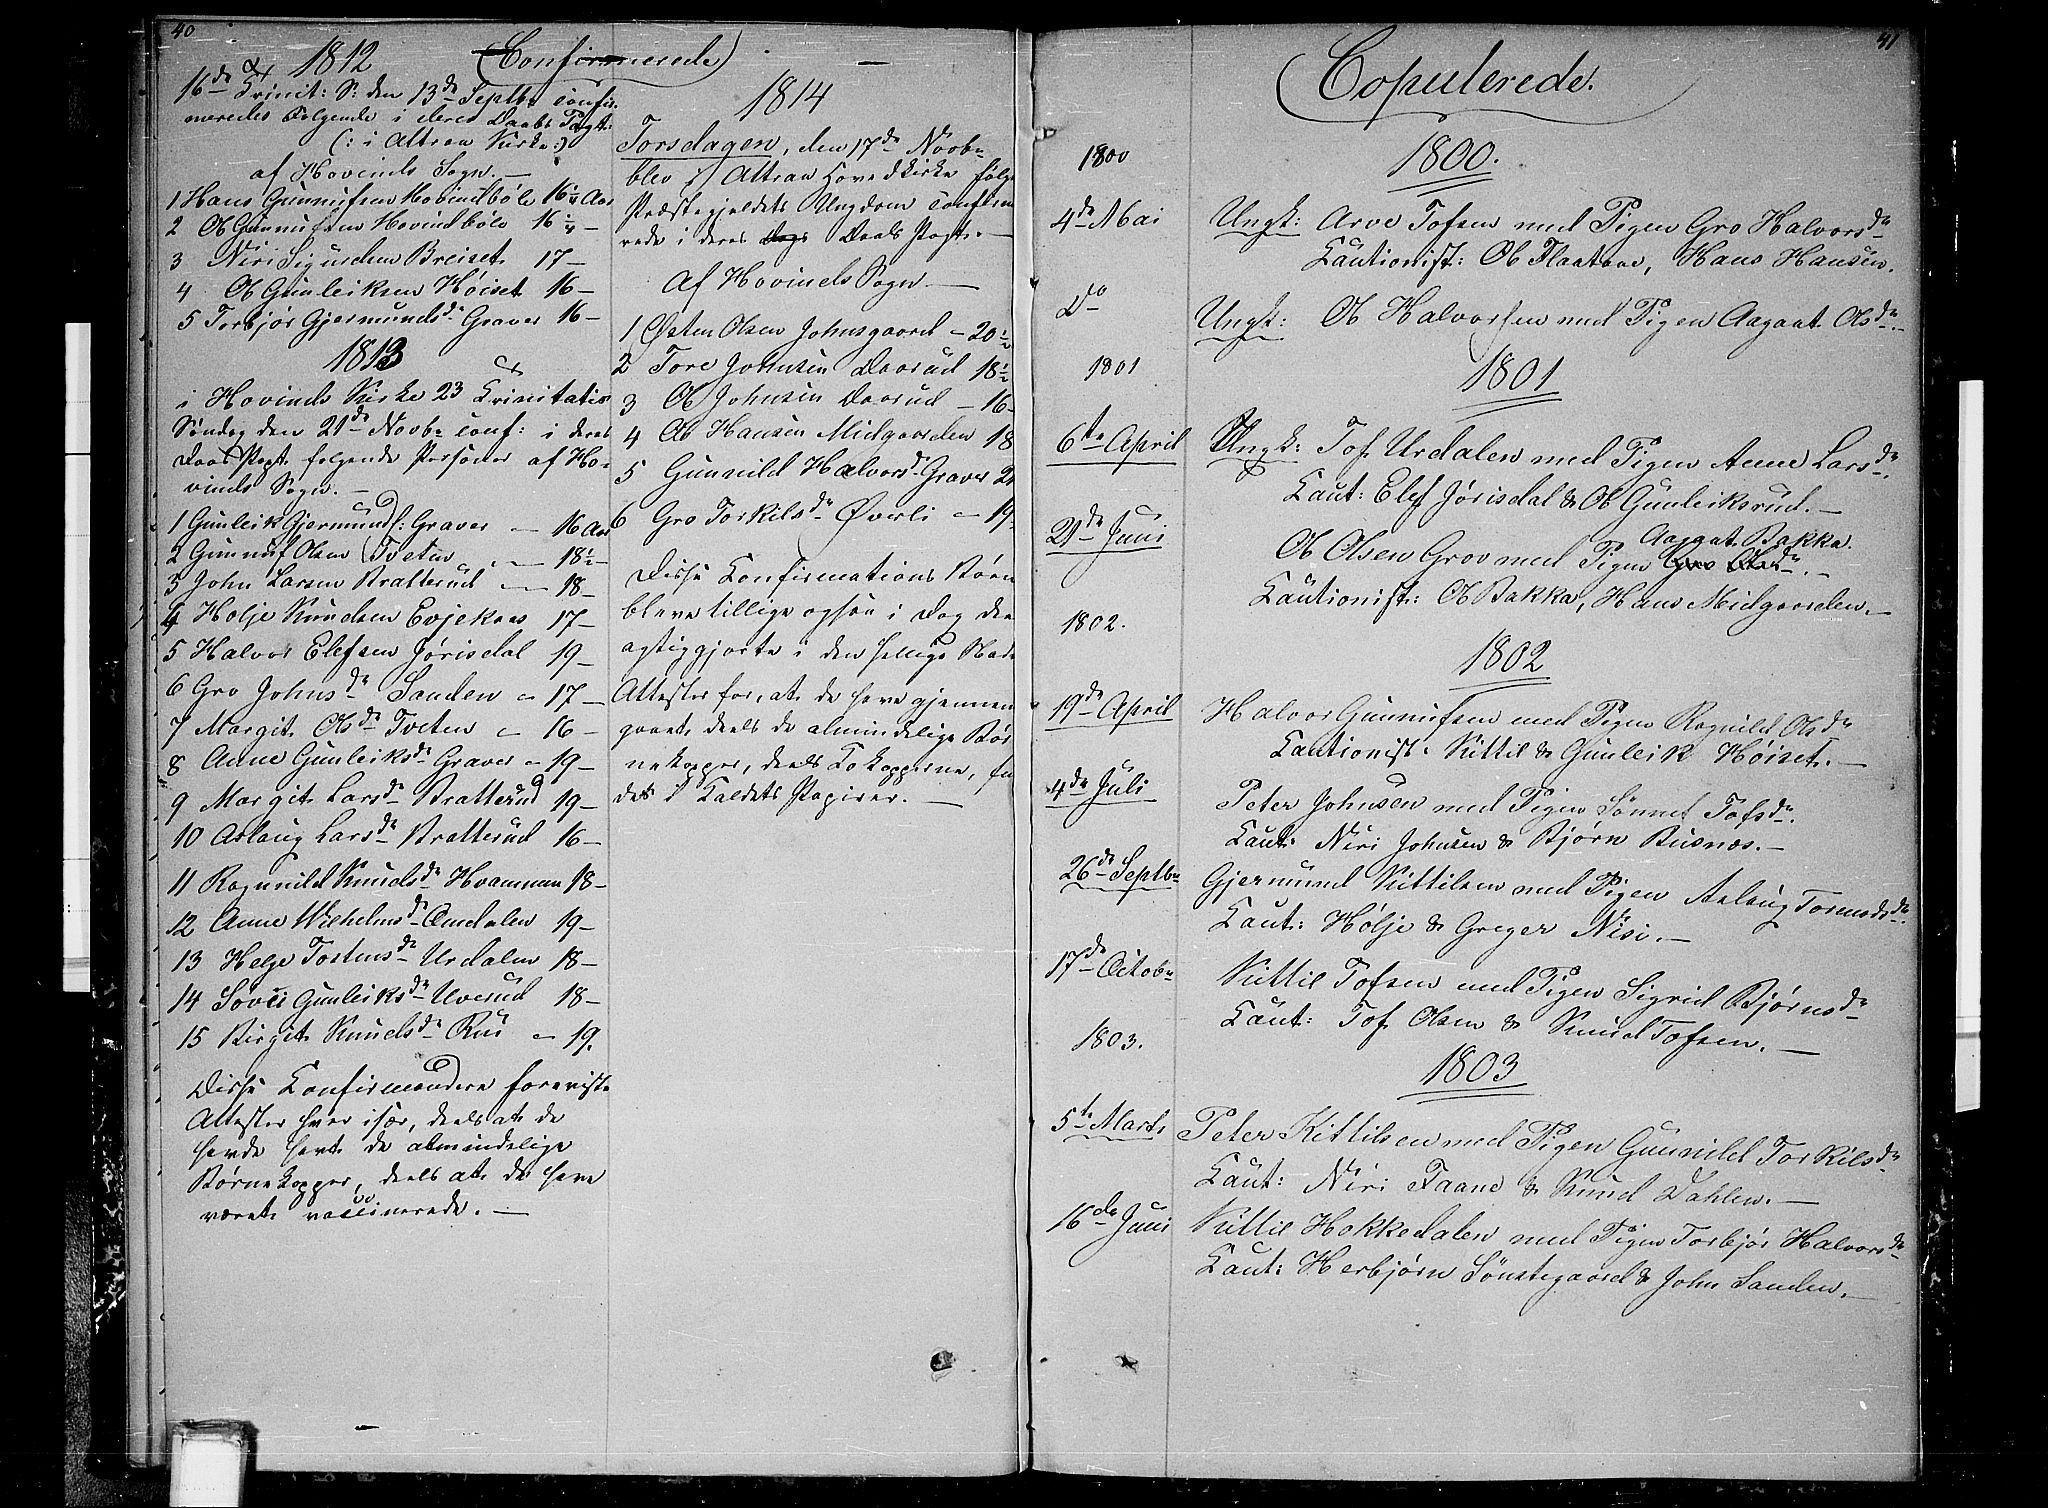 40
Confirmerede
1812
16de Trinit: S: den 13de Septbr confir-
meredes Følgende i deres Daabs Pagt:
(: i Attraa Kirke :)
af Hovinds Sogn. —
1 Hans Gunnufsen Hovindbøle 16¼ Aar
2 Ol Gunnufsen Hovindbøle 16¼ —
3 Niri Sigurdsen Breiset 17 —
4 Ol Gunleiksen Høiset 16 —
5 Torbjør Gjermundsdr Graver 16 —
1813
i Hovinds Kirke 23 Trinitatis
Søndag den 21de Novbr conf: i deres
Daabs Pagt følgende Personer af Ho-
vinds Sogn. —
1 Gunleik Gjermunds: Graver — 16 Aar
2 Gunnuf Olsen Tveten — 18½ —
3 John Larsen Bratterud — 18 —
4 Holje Knudsen Evjekaas 17 —
5 Halvor Elefsen Jørisdal 19 —
6 Gro Johnsdr Sanden — 17 —
7 Margit Olsdr Tveten — 16 —
8 Anne Gunleiksdr Graver — 19 —
9 Margit Larsdr Bratterud 19 —
10 Aslaug Larsdr Bratterud 16 —
11 Ragnild Knudsdr Hvamman 18 —
12 Anne Wilhelmsdr Omdalen 19 —
13 Helge Tostensdr Urdalen 18 —
14 Søvei Gunleiksdr Uverud 18 —
15 Birgit Knudsdr Rue — 19.
Disse Confirmandere foreviste
Attester hver især, deels at de
havde havt de almindelige
Børnekopper, deels at de have
været vaccinerede. —
1814
Torsdagen, den 17de Novbr
blev i Attraa Hovedkirke følg
Præstegjeldets Ungdom confirme
rede i deres Daabs Pagt. —
Af Hovinds Sogn. —
1 Østen Olsen Johnsgaard — 20½
2 Tore Johnsen Daarud 18½
3 Ol Johnsen Daarud — 16 —
4 Ol Hansen Midgaarden 18
5 Gunnild Halvorsdr Graver 2
6 Gro Torkilsdr Øverli — 19.
Disse Confirmations Børn
bleve tillige ogsaa i Dag de
agtiggjorte i den hellige Nad
Attester for, at de have gjennem
gaaet deels de almindelige Bør
nekopper, deels Kokopperne, fin
des i Kaldets Papirer. —
41
Copulerede.
1800 1800.
4de Mai Ungk: Arve Tofsen med Pigen Gro Halvorsdr
Cautionist: Ol Flaatane, Hans Hansen.
Do Ungk: Ol Halvorsen med Pigen Aagaat Olsdr. —
1801 1801
6te April Ungk: Tof Urdalen med Pigen Anne Larsdr.
Caut: Elef Jørisdal & Ol Gunleiksrud. —
21de Juni Ol Olsen Grov med Pigen Gro Olsdr. — Aagaat Bakka.
Cautionist: Ol Bakka, Hans Midgaarden. —
1802. 1802
19de April Halvor Gunnufsen med Pigen Ragnild Olsdr
Cautionist: Kittil & Gunleik Høiset. —
4de Juli Peter Johnsen med Pigen Sønnef Tofsdr.
Caut: Niri Johnsen & Bjørn Busnæs. —
26de Septbr Gjermund Kittilsen med Pigen Aslaug Tormodsdr
Caut: Holje & Greger Nisi. —
17de Octobr Kittil Tofsen med Pigen Sigrid Bjørnsdr
Caut: Tof Olsen & Knud Tofsen. —
1803. 1803
5te Marts Peter Kittilsen med Pigen Gunnild Torkilsdr
Caut: Niri Faane & Knud Dahlen. —
16de Juni Kittil Hokkedalen med Pigen Torbjør Halvorsdr
Caut: Herbjørn Sønstegaard & John Sanden. —